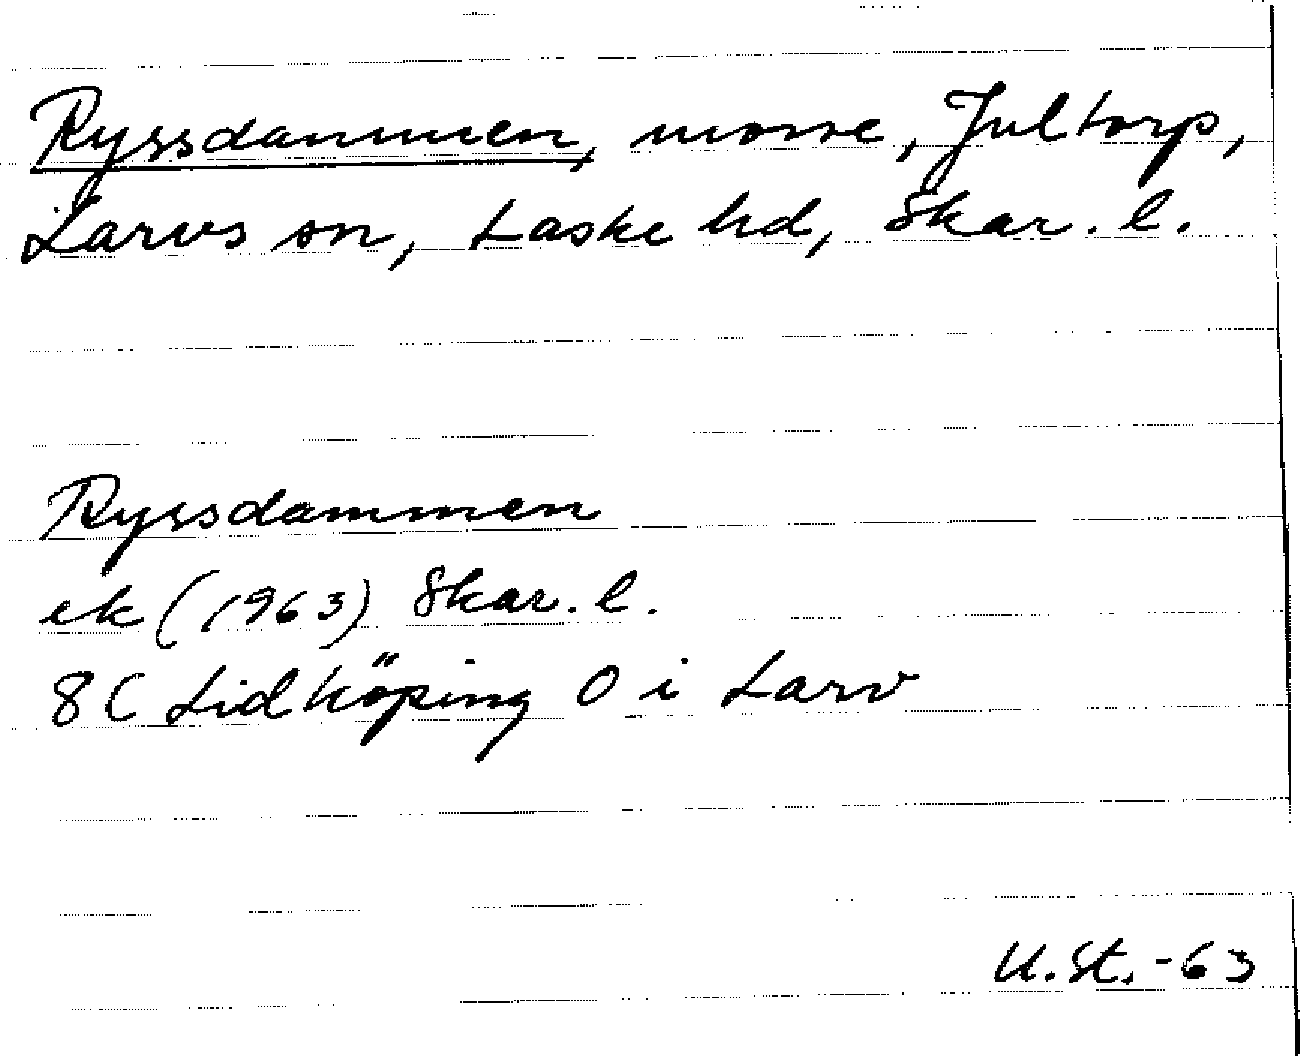 Ryssdammen, mosse, Jultorp,
Larvs sn, Laske hd, Skar. l.
Ryssdammen
ek (1963) Skar. l.
8C Lidköping O i Larv
U.St.-63